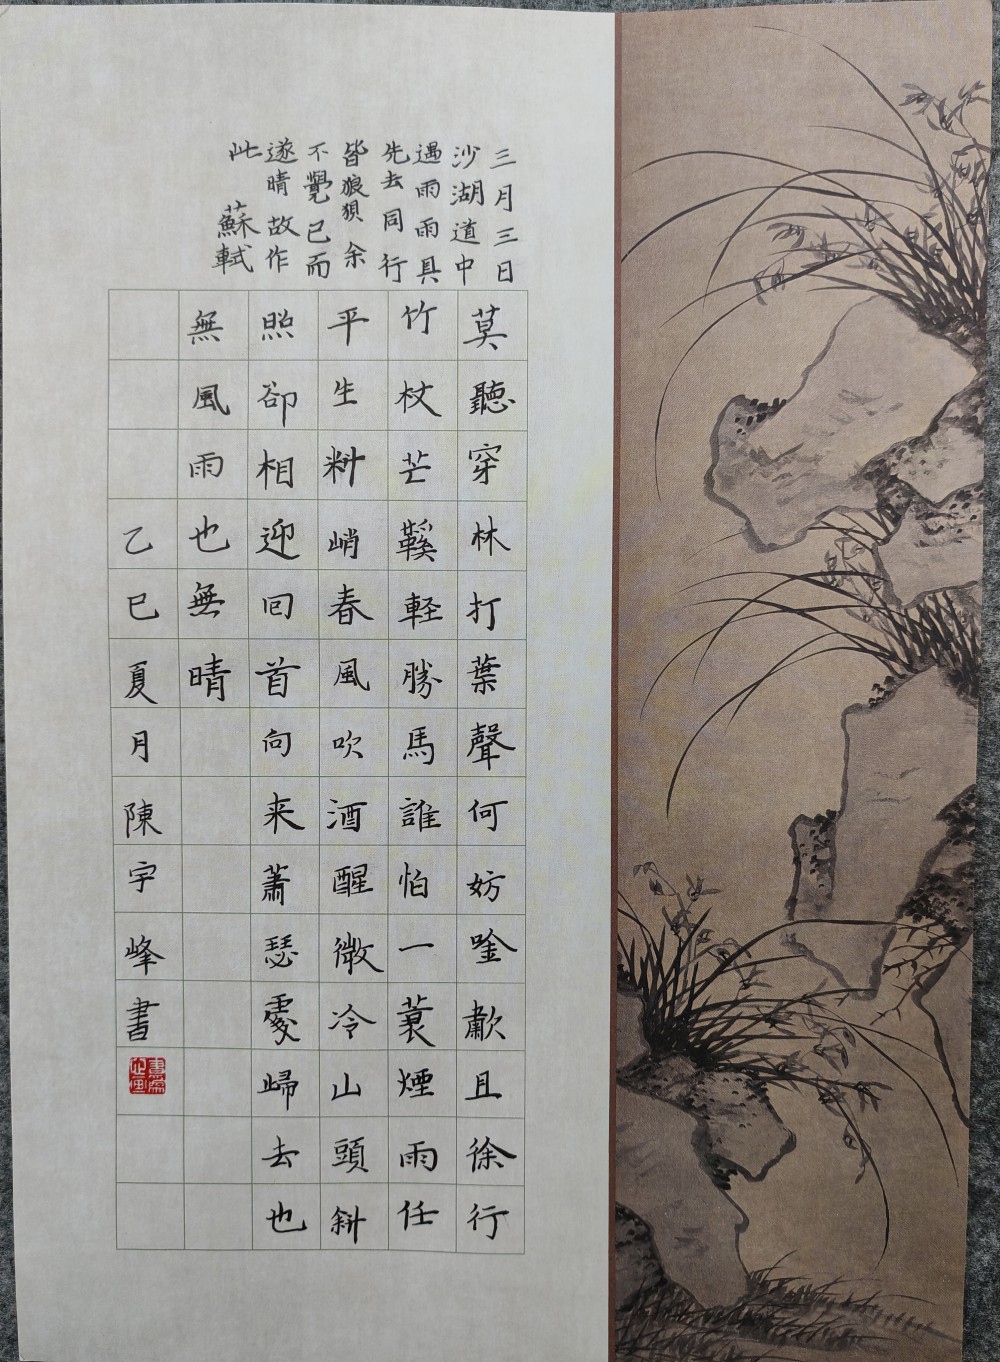 三月三日
沙湖道中
遇雨雨具
先去同行
皆狼狽余
不覺已而
遂晴故作
此 蘇軾
莫聽穿林打葉聲何妨唫歗且徐行
竹杖芒鞵軽勝馬誰怕一蓑煙雨任
平生料峭春風吹酒醒微冷山頭斜
照卻相迎回首向来蕭瑟處歸去也
無風雨也無晴
乙巳夏月陳宇峰書